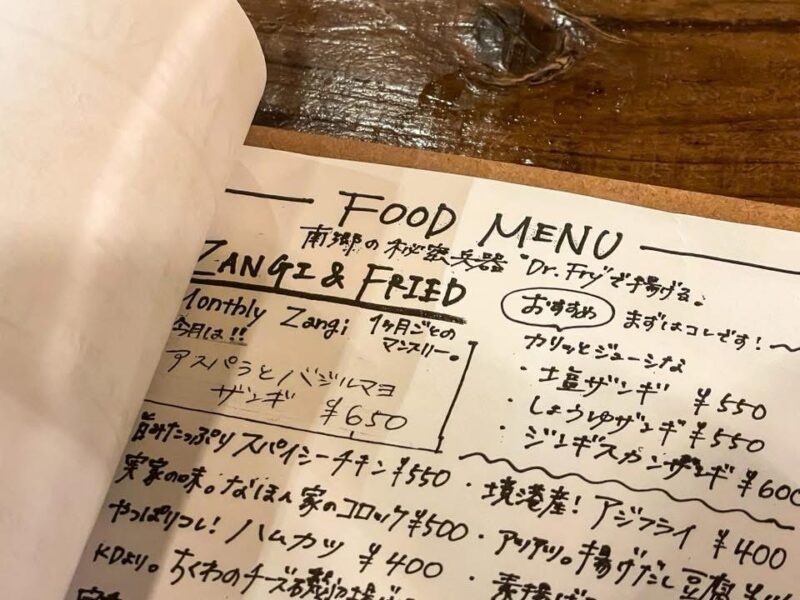 FOOD MENU
南郷の秘密兵器 "Dr. Fry"で揚げる。
ZANGI & FRIED
Monthly Zangi 1ヶ月ごとの
マンスリー。
今月は!!
アスパラとバジルマヨ
ザンギ ¥650
おすすめ まずはコレです!
カリッとジューシな
・塩ザンギ ¥550
・しょうゆザンギ ¥550
・ジンギスカンザンギ ¥600
旨みたっぷりスパイシーチキン ¥550
実家の味。なほん家のコロッケ ¥500
やっぱりコレ! ハムカツ ¥400
KDより。ちくわのチーズ磯辺揚げ
・境港産! アジフライ ¥400
・アツアツ。揚げだし豆腐
・素揚げ